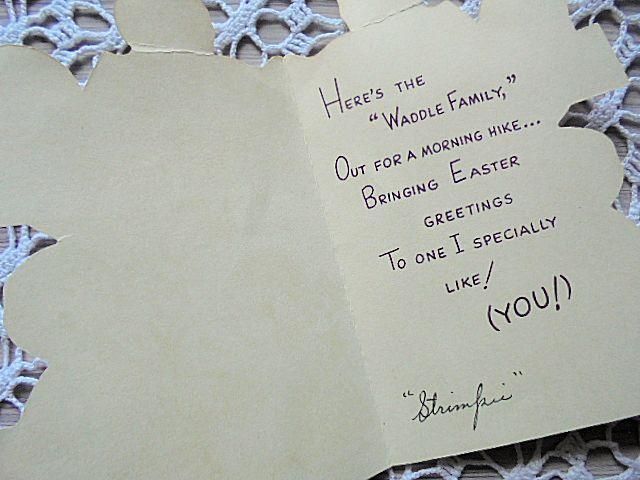 HERE'S THE
"WADDLE FAMILY,"
OUT FOR A MORNING HIKE...
BRINGING EASTER
GREETINGS
TO ONE I SPECIALLY
LIKE!
(YOU!)
"Strimpie"